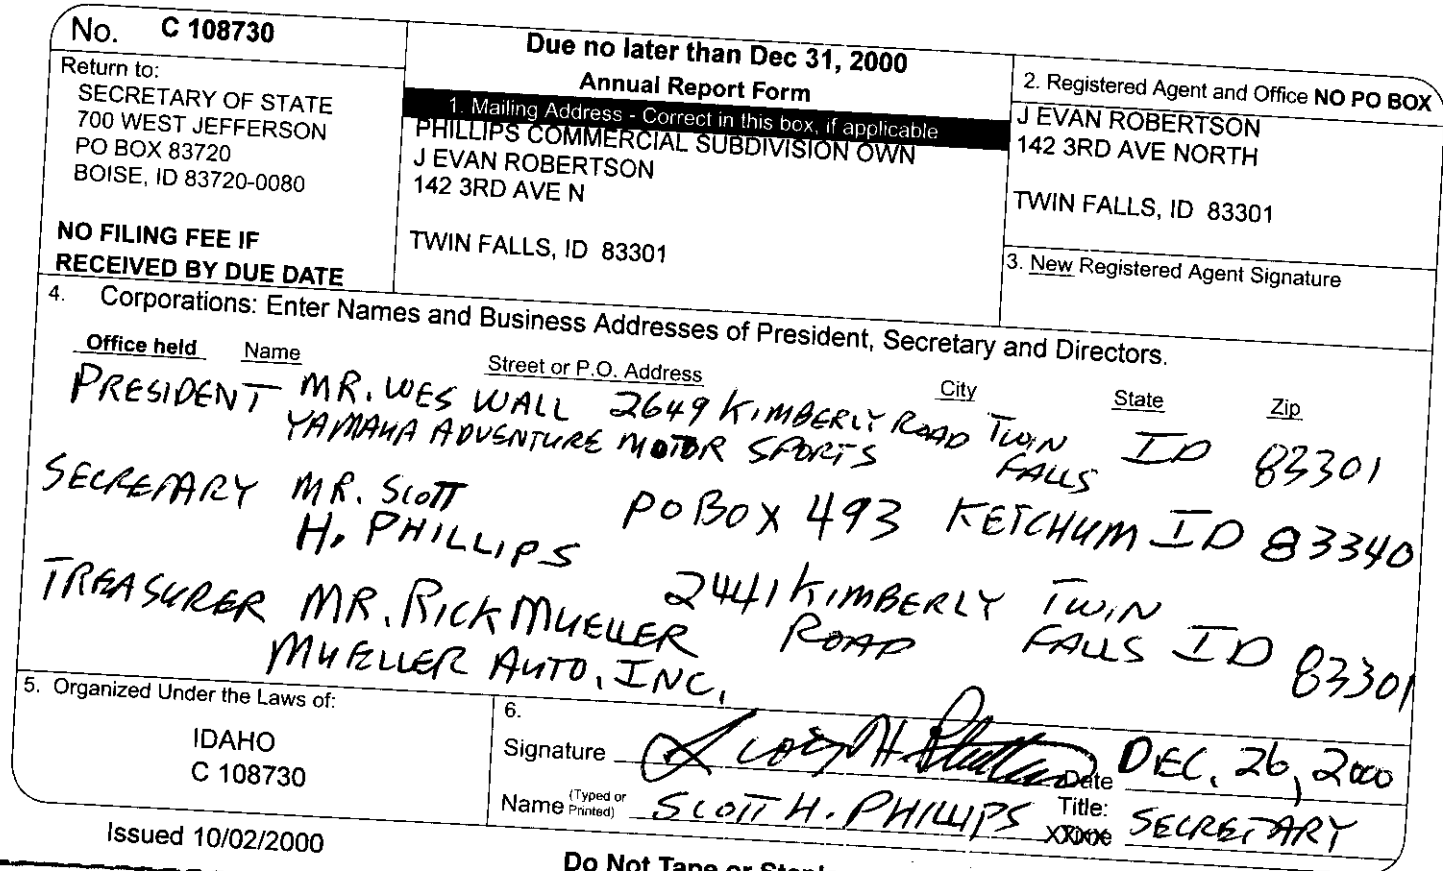 No. C 108730
Return to:
SECRETARY OF STATE
700 WEST JEFFERSON
PO BOX 83720
BOISE, ID 83720-0080
NO FILING FEE IF
RECEIVED BY DUE DATE
Due no later than Dec 31, 2000
Annual Report Form
1. Mailing Address - Correct in this box, if applicable
PHILLIPS COMMERCIAL SUBDIVISION OWN
J EVAN ROBERTSON
142 3RD AVE N
TWIN FALLS, ID 83301
2. Registered Agent and Office NO PO BOX
J EVAN ROBERTSON
142 3RD AVE NORTH
TWIN FALLS, ID 83301
3. New Registered Agent Signature
4. Corporations: Enter Names and Business Addresses of President, Secretary and Directors.
Office held Name Street or P.O. Address City State Zip
PRESIDENT MR. WES WALL 2649 KIMBERLY ROAD TWIN ID 83301
YAMAHA ADVENTURE MOTOR SPORTS FALLS
SECRETARY MR. SCOTT PO BOX 493 KETCHUM ID 83340
H. PHILLIPS
TREASURER MR. RICK MUELLER 2441 KIMBERLY TWIN ID 83301
MUELLER AUTO, INC. ROAD FALLS
5. Organized Under the Laws of:
IDAHO
C 108730
6.
Signature Scott H. Phillips Date DEC. 26, 2000
Name (Typed or Printed) SCOTT H. PHILLIPS Title: SECRETARY
Issued 10/02/2000
Do Not Tape or